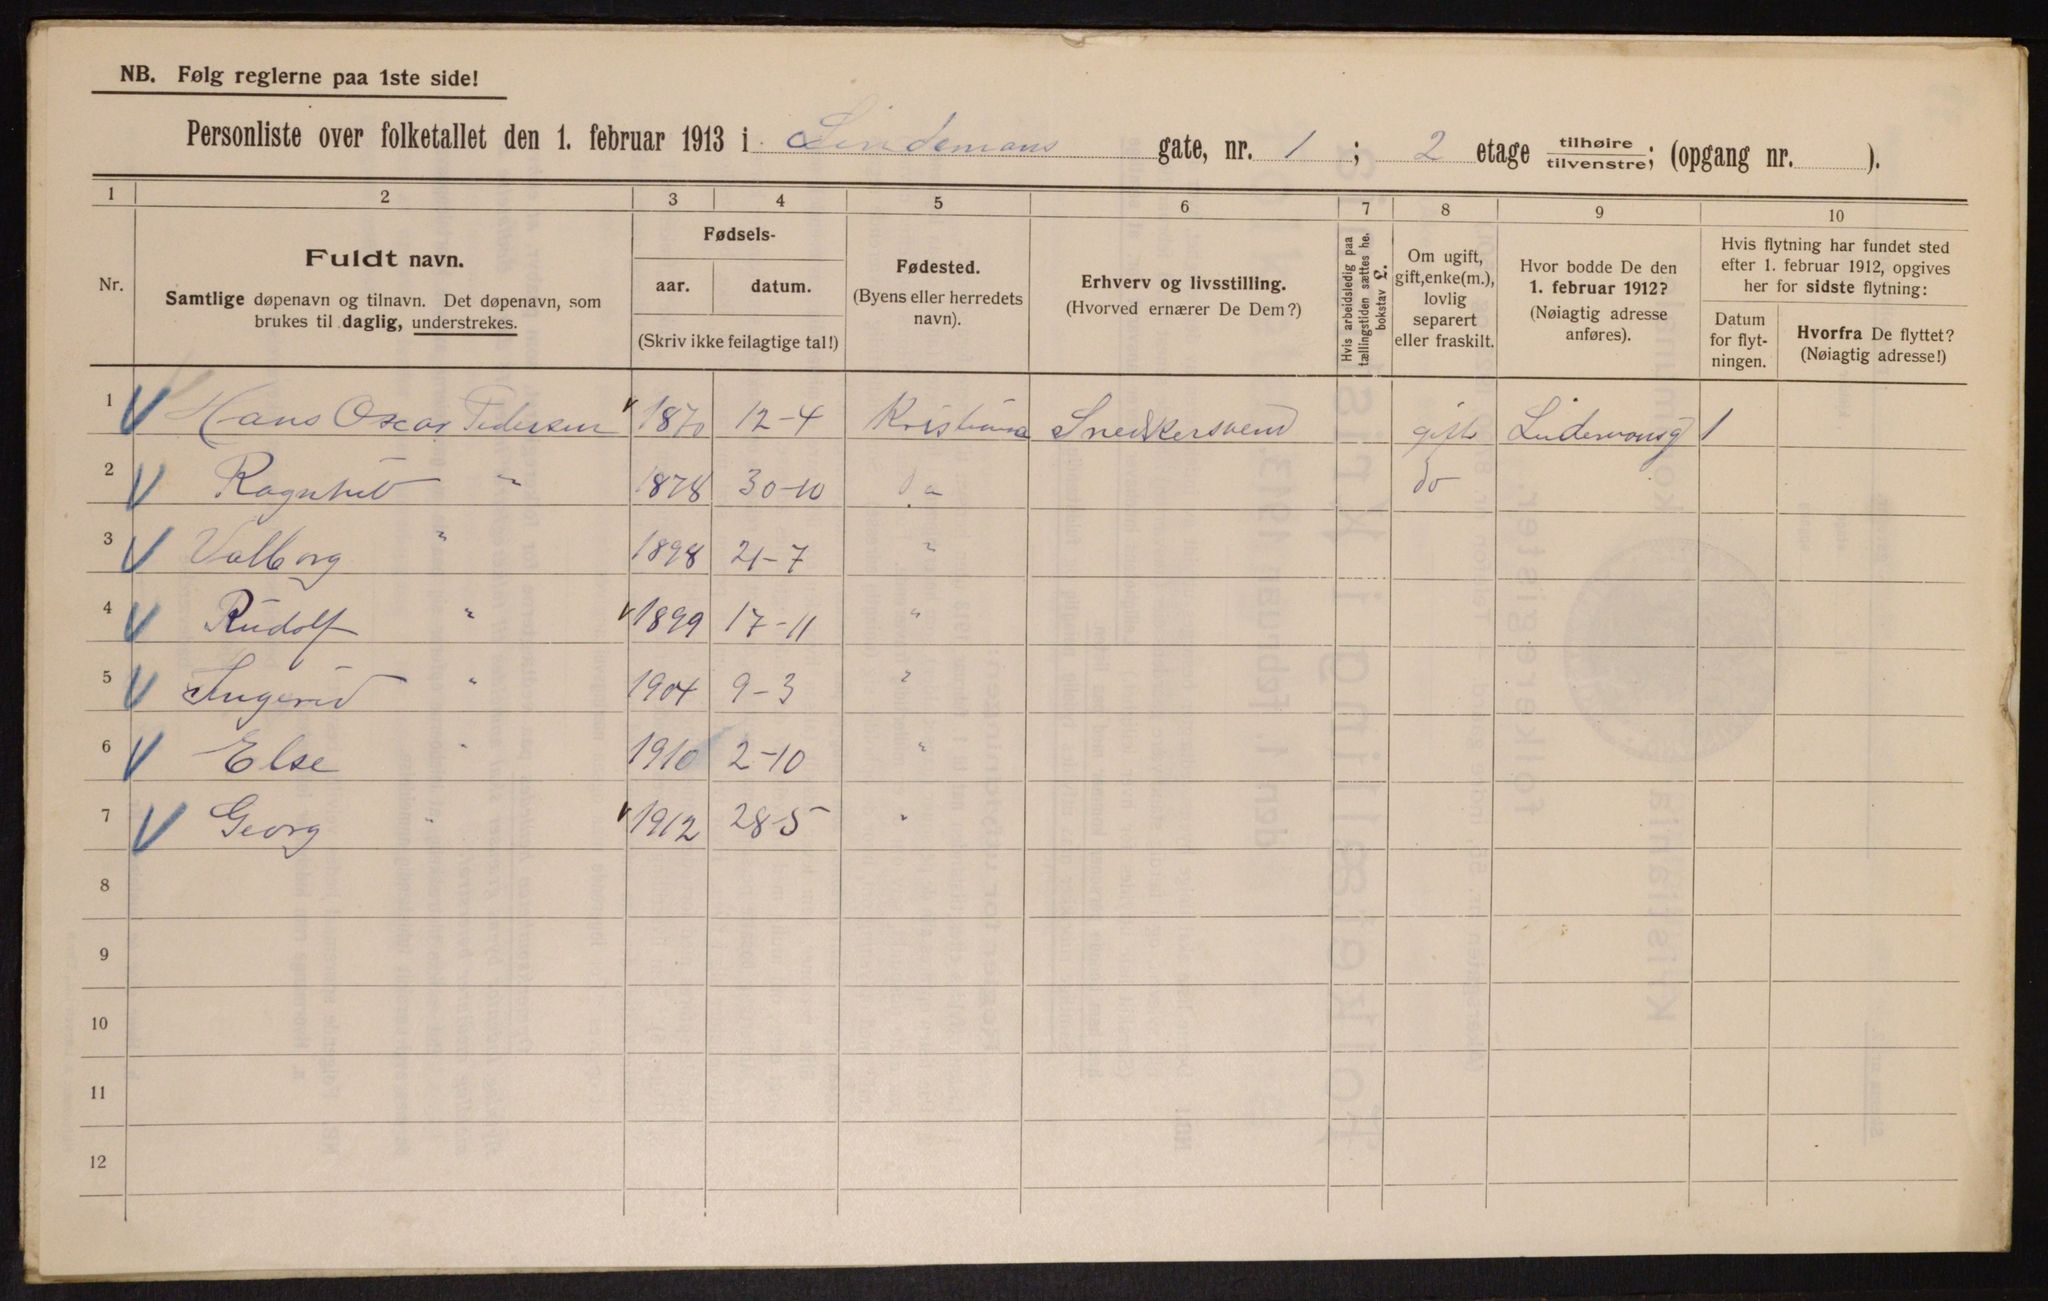 NB. Følg reglerne paa 1ste side!
Personliste over folketallet den 1. februar 1913 i Lindemans gate, nr. 1 ; 2 etage tilhøire tilvenstre; (opgang nr. ).
1 2 3 4 5 6 7 8 9 10
Nr.
Fuldt navn.
Samtlige døpenavn og tilnavn. Det døpenavn, som
brukes til daglig, understrekes.
Fødsels-
aar. datum.
(Skriv ikke feilagtige tal!)
Fødested.
(Byens eller herredets
navn).
Erhverv og livsstilling.
(Hvorved ernærer De Dem?)
Hvis arbeidsledig paa
tællingstiden sættes he.
bokstav L.
Om ugift,
gift, enke(m.),
lovlig
separert
eller fraskilt.
Hvor bodde De den
1. februar 1912?
(Nøiagtig adresse
anføres).
Hvis flytning har fundet sted
efter 1. februar 1912, opgives
her for sidste flytning:
Datum
for flyt-
ningen.
Hvorfra De flyttet?
(Nøiagtig adresse!)
1 Hans Oscar Pedersen 1870 12-4 Kristiania Snedkersvend gift Lindemansg 1
2 Ragnhild " 1878 30-10 Do do
3 Valborg " 1898 21-7 "
4 Rudolf " 1899 17-11 "
5 Ingerid " 1904 9-3 "
6 Else " 1910 2-10 "
7 Georg " 1912 28-5 "
8
9
10
11
12